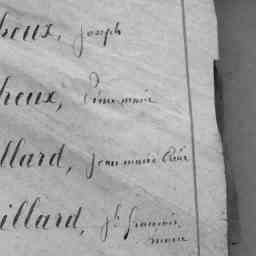 heux, Joseph
heux, Pierre marie
llard, Jean marie
illard, Jh françois
marie